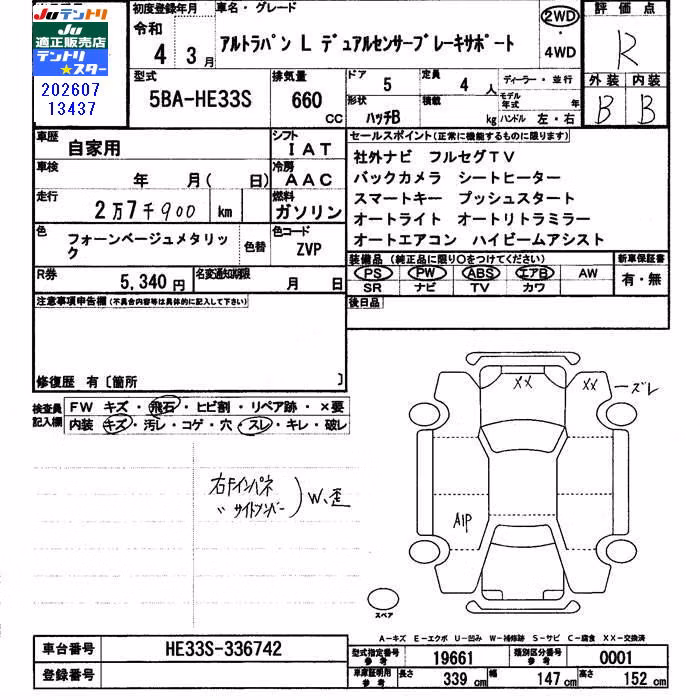 Juテントリ
JU
適正販売店
テントリ
★スター
202607
13437
初度登録年月
令和
4 3月
車名・グレード
アルトラパン L デュアルセンサーブレーキサポート
2WD
・
4WD
評価点
R
外装 内装
B B
型式
5BA-HE33S
排気量
660
CC
ドア
5
定員
4 人
ディーラー・並行
形状
ハッチB
積載
kg
モデル年式 年
ハンドル 左・右
車歴
自家用
シフト
IAT
車検
年 月( 日)
冷房
AAC
走行
2万7千900 km
燃料
ガソリン
色
フォーンベージュメタリック
色替
色コード
ZVP
R券
5,340円
名変通知期限
月 日
セールスポイント(正常に機能するものに限ります)
社外ナビ フルセグTV
バックカメラ シートヒーター
スマートキー プッシュスタート
オートライト オートリトラミラー
オートエアコン ハイビームアシスト
装備品(純正品に限り○をつけてください)
新車保証書
PS PW ABS エアB AW
SR ナビ TV カワ
有・無
後日品
注意事項申告欄(不具合内容等は具体的に記入して下さい)
修復歴 有〔箇所 〕
検査員
記入欄
FW キズ・飛石・ヒビ割・リペア跡・×要
内装 キズ・汚レ・コゲ・穴・スレ・キレ・破レ
右Fインパネ
〃 サイドメンバー
)W、歪
XX
XX
ーズレ
A1P
スペア
A-キズ E-エクボ U-凹み W-補修跡 S-サビ C-腐食 XX-交換済
車台番号
HE33S-336742
登録番号
型式指定番号
参考
19661
類別区分番号
参考
0001
車庫証明用
参考
長さ
339 cm
幅
147 cm
高さ
152 cm